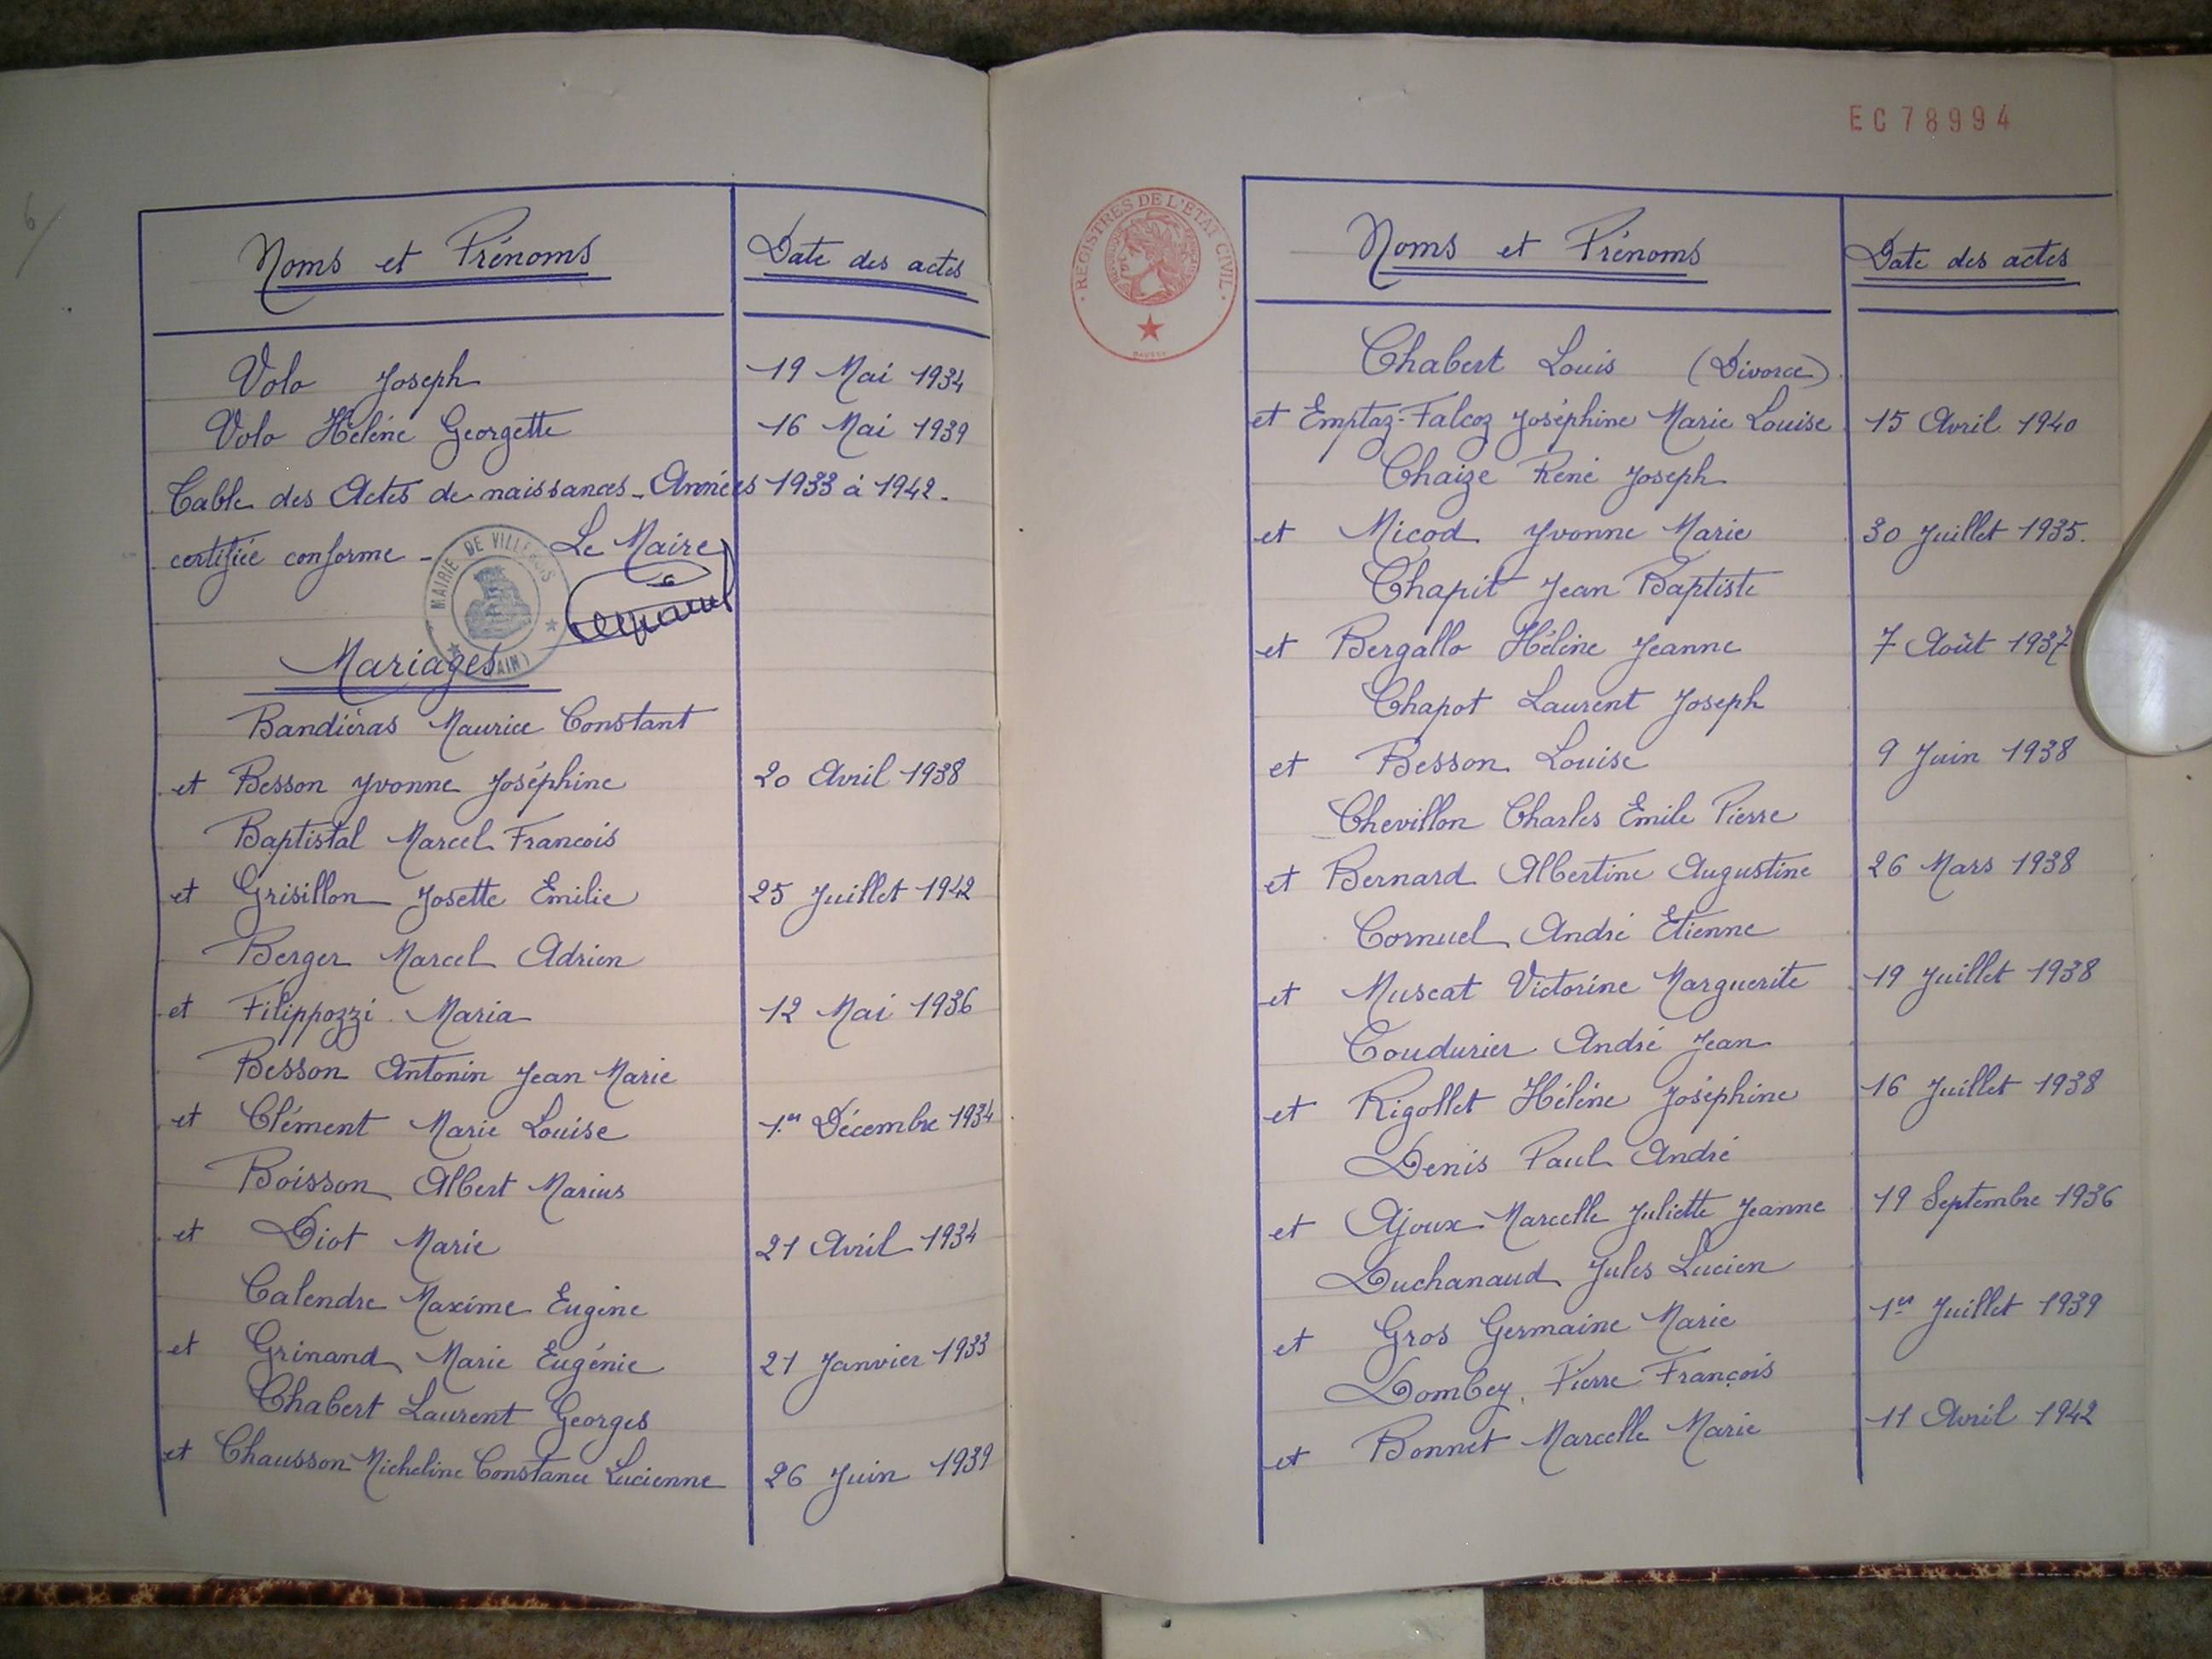 6
Noms et Prénoms Date des actes
Volo Joseph 19 Mai 1934
Volo Hélène Georgette 16 Mai 1939
Table des Actes de naissances - Années 1933 à 1942.
certifiée conforme - Le Maire
MAIRIE DE VILLEBOIS (AIN)
Mariages
Bandiéras Maurice Constant
et Besson Yvonne Joséphine 20 Avril 1938
Baptistal Marcel Francois
et Grisillon Josette Emilie 25 Juillet 1942
Berger Marcel Adrien
et Filippozzi Maria 12 Mai 1936
Besson Antonin Jean Marie
et Clément Marie Louise 1er Décembre 1934
Boisson Albert Marius
et Diot Marie 21 Avril 1934
Calendre Maxime Eugène
et Grinand Marie Eugénie 21 Janvier 1933
Chabert Laurent Georges
et Chausson Micheline Constance Lucienne 26 Juin 1939
EC78994
REGISTRES DE L'ETAT CIVIL
Noms et Prénoms Date des actes
Chabert Louis (Divorce)
et Emptaz-Falcoz Joséphine Marie Louise 15 Avril 1940
Chaize René Joseph
et Micod Yvonne Marie 30 Juillet 1935.
Chapit Jean Baptiste
et Bergallo Hélène Jeanne 7 Août 1937
Chapot Laurent Joseph
et Besson Louise 9 Juin 1938
Chevillon Charles Emile Pierre
et Bernard Albertine Augustine 26 Mars 1938
Cornuel André Etienne
et Muscat Victorine Marguerite 19 Juillet 1938
Coudurier André Jean
et Rigollet Hélène Joséphine 16 Juillet 1938
Denis Paul André
et Ajoux Marcelle Juliette Jeanne 19 Septembre 1936
Duchanaud Jules Lucien
et Gros Germaine Marie 1er Juillet 1939
Dombey Pierre François
et Bonnet Marcelle Marie 11 Avril 1942